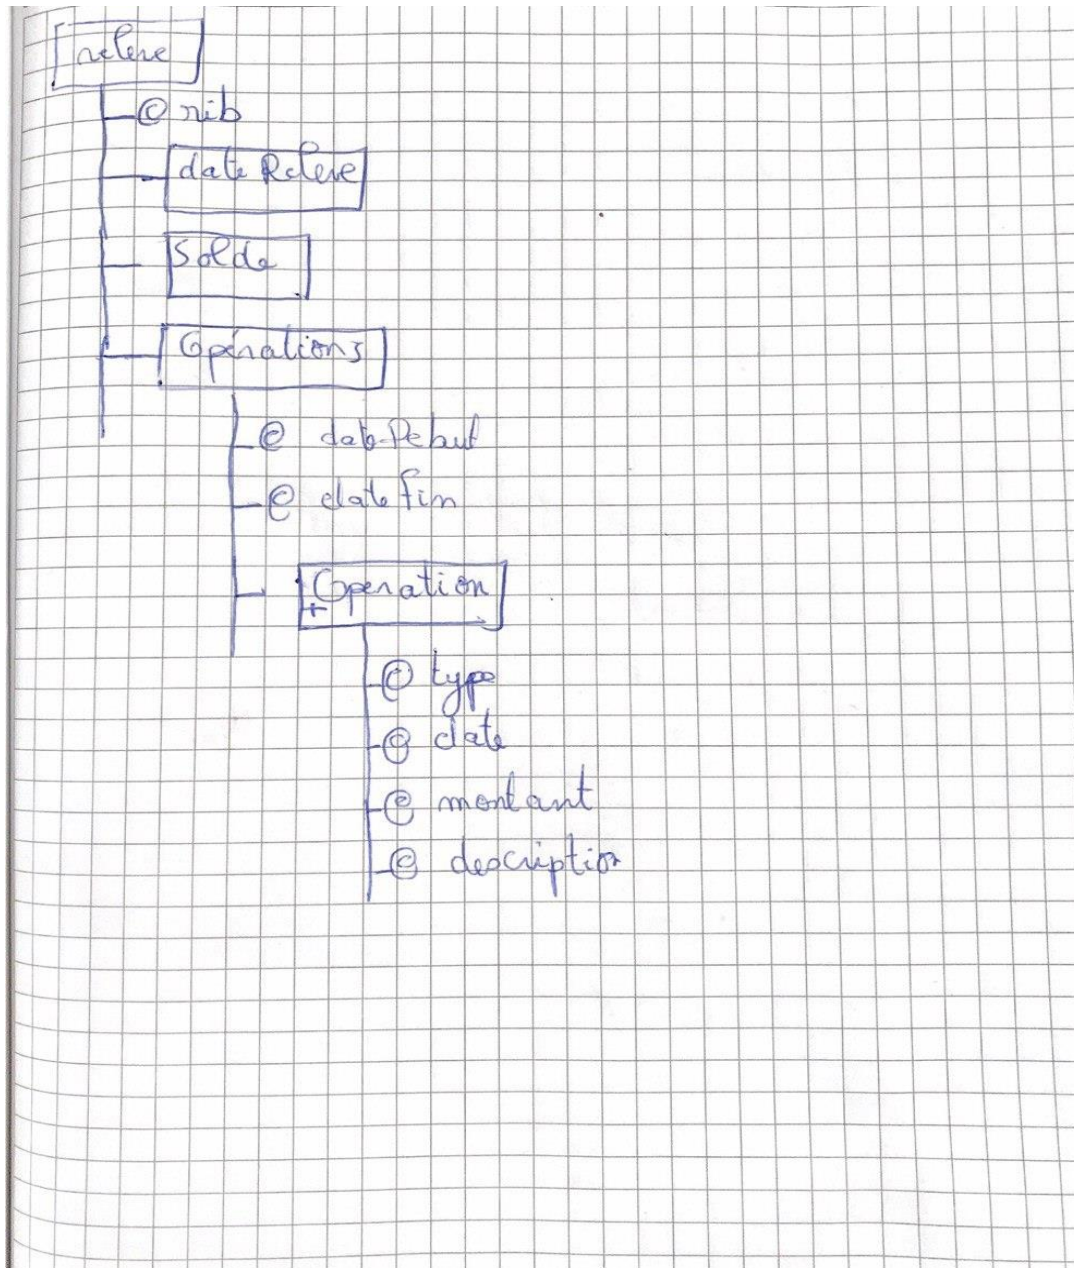 releve
@ rib
dateReleve
Solde
Operations
@ dateDebut
@ datefin
Operation
+
@ type
@ date
@ montant
@ description